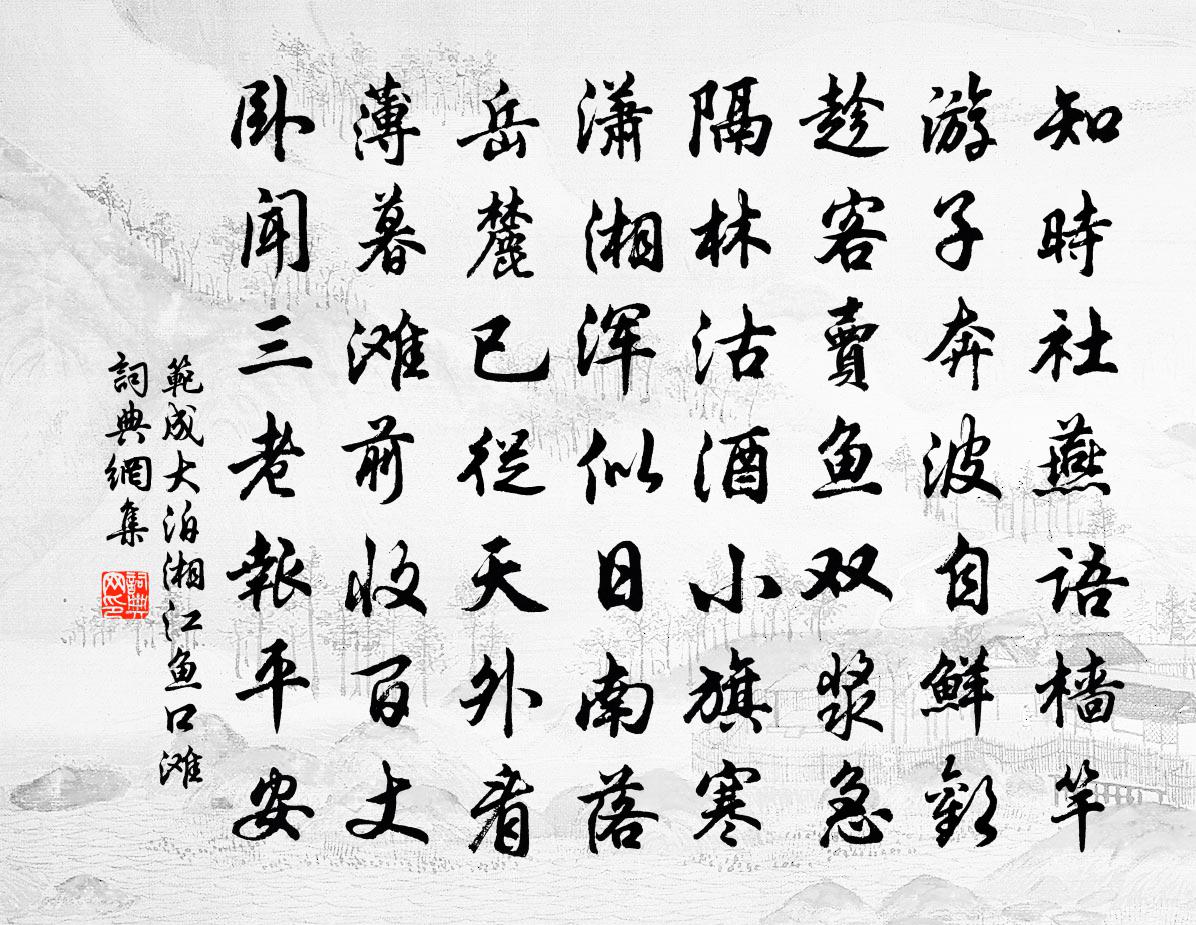 知時社燕語檣竿
游子奔波自鮮歡
趁客賣鱼双漿急
隔林沽酒小旗寒
瀟湘浑似日南落
岳麓已從天外看
薄暮滩前收百丈
卧闻三老報平安
範成大泊湘江鱼口滩
詞典網集
詞典
网印